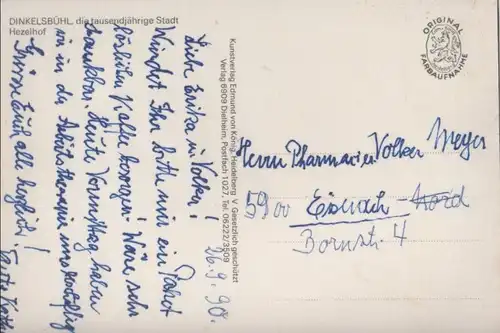 DINKELSBÜHL, die tausendjährige Stadt
Hezelhof
ORIGINAL
FARBAUFNAHME
Kunstverlag Edmund von König, Heidelberg V. Gesetzlich geschützt
Verlag 6909 Dielheim, Postfach 1027, Tel. 06222/3509
26.9.90.
Liebe Erika u. Volker!
Würdet Ihr bitte mir ein Paket
löslichen Kaffee besorgen! Wäre sehr
dankbar. Heute Vormittag haben
wir in der Arbeitstherapie
Grüsse Euch alle herzlich!
Herrn Pharmazier Volker Meyer
5900 Eisenach-Nord
Bornstr. 4